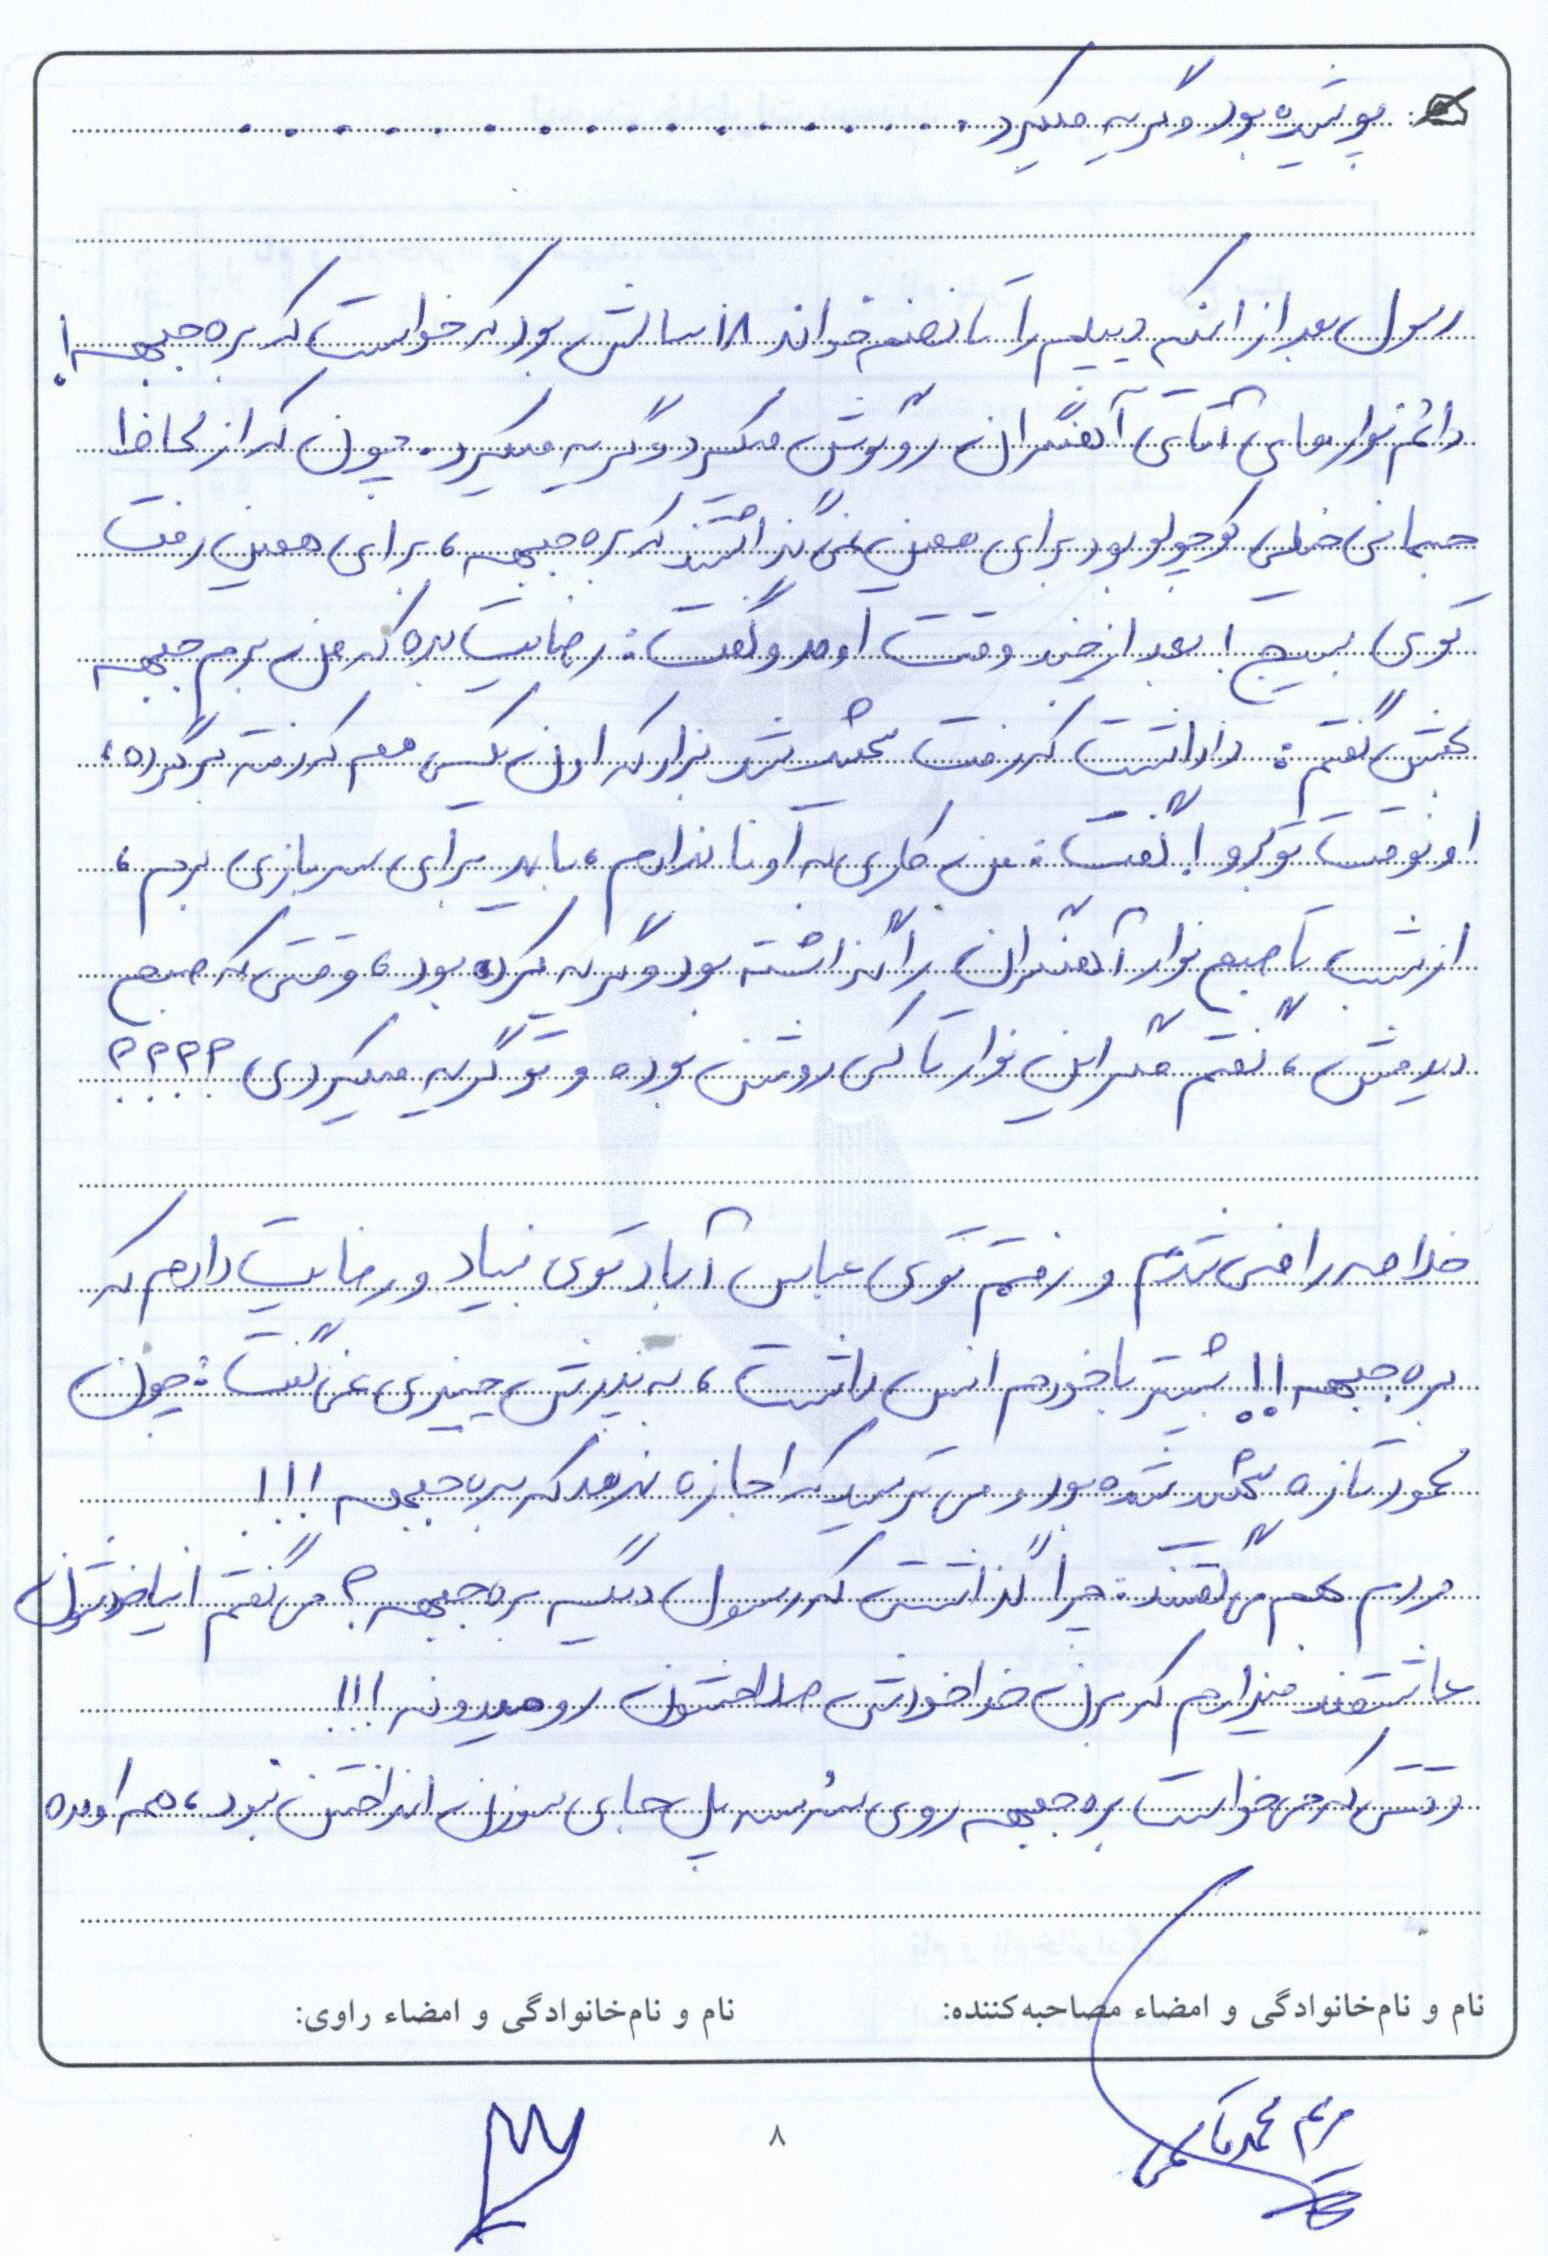 پوشیده بود و گریه میکرد.
رسول بعد از اینکه دیپلم را تا نصفه خواند ۱۸ سالش بود که خواست که بره جبهه!
دائم نوارهای آقای آهنگران رو گوش میکرد و گریه میکرد. چون که از لحاظ
جسمانی خیلی کوچولو بود برای همین نمی گذاشتند که بره جبهه، برای همین رفت
توی بسیج! بعد از چند وقت اومد و گفت: رضایت بده که من برم جبهه
بهش گفتم: داداشت که رفت شهید شد بزار که اون یکی هم که رفته برگرده،
اونوقت تو برو! گفت: من کاری به اونا ندارم، باید برای سربازی برم،
از شب تا صبح نوار آهنگران را گذاشته بود و گریه کرده بود، وقتی که صبح
دیدمش، گفتم مگر این نوار تا کی روشن بوده و تو گریه میکردی ؟؟؟؟
خلاصه راضی شدم و رفتم توی عباس آباد توی بنیاد و رضایت دادم که
بره جبهه!! بیشتر با خودم انس داشت، به پدرش چیزی نمی گفت: چون
محمود تازه شهید شده بود و می ترسید که اجازه ندهد که بره جبهه!!!
مردم هم می گفتند: چرا گذاشتی که رسول دیگه بره جبهه؟ می گفتم اینا خودشون
عاشقند میذارم که برن خدا خودش صلاحشون رو میدونه!!!
وقتی که می خواست بره جبهه روی سر سه پل جای سوزن انداختن نبود، همه اومده
نام و نام‌خانوادگی و امضاء مصاحبه‌کننده:
نام و نام‌خانوادگی و امضاء راوی:
مریم محمدقاسمی
۸